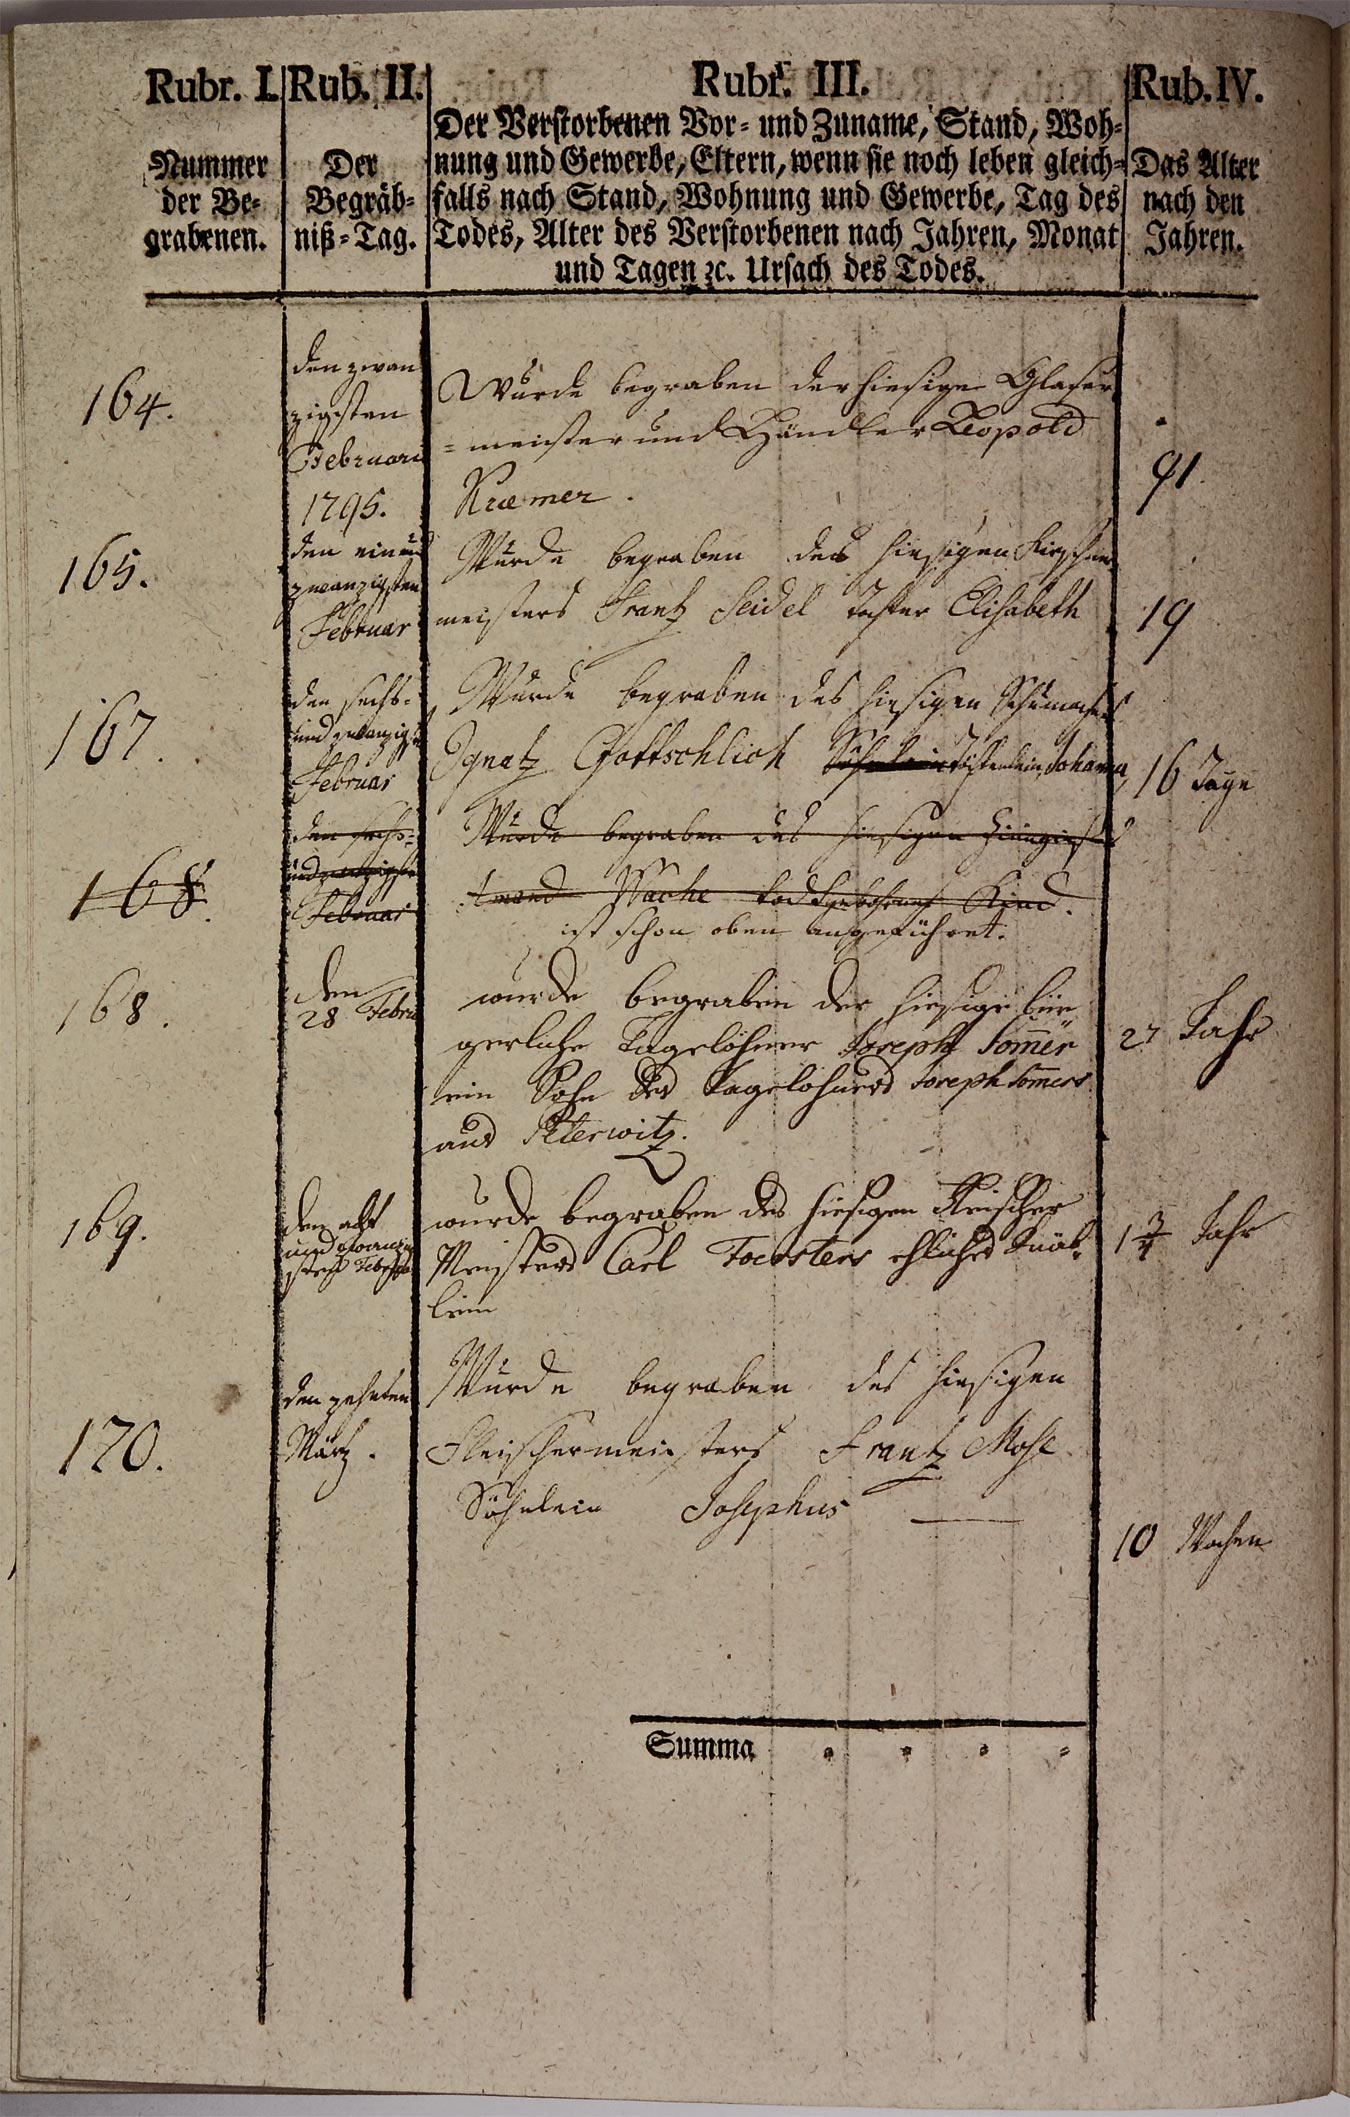 Rubr. I. Rub. II. Rubr. III. Rub. IV.
Nummer
der Be-
grabenen.
Der
Begräb-
niß-Tag.
Der Verstorbenen Vor- und Zuname, Stand, Woh-
nung und Gewerbe, Eltern, wenn sie noch leben gleich-
falls nach Stand, Wohnung und Gewerbe, Tag des
Todes, Alter des Verstorbenen nach Jahren, Monat
und Tagen ꝛc. Ursach des Todes.
Das Alter
nach den
Jahren.
164.
den zwan
zigsten
Februari
1795.
Wurde begraben der hiesige Glaser
=meister und Händler Leopold
Kraemer.
91.
165.
den ein und
zwanzigsten
Februar
Wurde begraben des hiesigen
meisters Frantz Seidel Tochter Elisabeth
19
167.
den sechs-
und zwanzigst
Februar
Wurde begraben des hiesigen Schumachers
Ignatz Gottschlich Söhnlein Töchterlein Johanna,
16 Tage
168.
den sechs-
und zwanzigste
Februar
Wurde begraben des hiesigen
Amand Wache todtgebohrnes Kind.
ist schon oben angeführet.
168.
den
28 Febru
wurde begraben der hiesige bür
gerliche Tagelöhner Joseph Som̄er
ein Sohn des Tagelöhners Joseph Som̄ers
aus Peterwitz.
27 Jahr
169.
den acht
und zwanzig
sten Februar
wurde begraben des hiesigen Fleischer
Meisters Carl Foersters ehliches Knäb-
lein
1 3/4 Jahr
170.
den zehnten
Märtz.
Wurde begraben des hiesigen
Fleischermeisters Frantz Mose
Söhnlein Josephus
10 Wochen
Summa